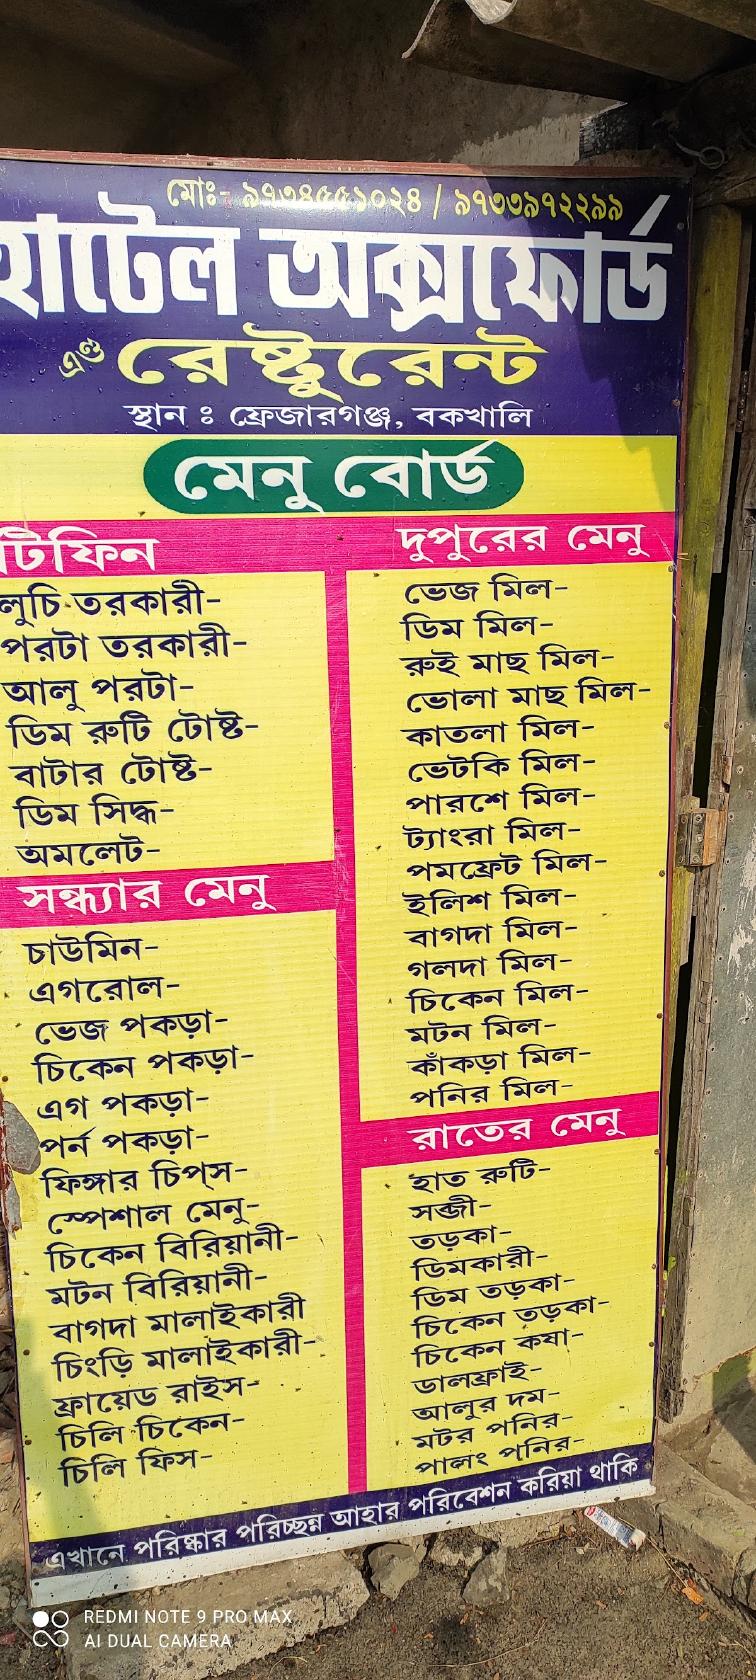 মোঃ- ৯৭৩৪৫৫১০২৪ / ৯৭৩৩৯৭২২৯৯
হোটেল অক্সফোর্ড
এণ্ড রেষ্টুরেন্ট
স্থান ঃ ফ্রেজারগঞ্জ, বকখালি
মেনু বোর্ড
টিফিন
লুচি তরকারী-
পরটা তরকারী-
আলু পরটা-
ডিম রুটি টোষ্ট-
বাটার টোষ্ট-
ডিম সিদ্ধ-
অমলেট-
সন্ধ্যার মেনু
চাউমিন-
এগরোল-
ভেজ পকড়া-
চিকেন পকড়া-
এগ পকড়া-
পর্ন পকড়া-
ফিঙ্গার চিপ্‌স-
স্পেশাল মেনু-
চিকেন বিরিয়ানী-
মটন বিরিয়ানী-
বাগদা মালাইকারী
চিংড়ি মালাইকারী-
ফ্রায়েড রাইস-
চিলি চিকেন-
চিলি ফিস-
দুপুরের মেনু
ভেজ মিল-
ডিম মিল-
রুই মাছ মিল-
ভোলা মাছ মিল-
কাতলা মিল-
ভেটকি মিল-
পারশে মিল-
ট্যাংরা মিল-
পমফ্রেট মিল-
ইলিশ মিল-
বাগদা মিল-
গলদা মিল-
চিকেন মিল-
মটন মিল-
কাঁকড়া মিল-
পনির মিল-
রাতের মেনু
হাত রুটি-
সব্জী-
তড়কা-
ডিমকারী-
ডিম তড়কা-
চিকেন তড়কা-
চিকেন কষা-
ডালফ্রাই-
আলুর দম-
মটর পনির-
পালং পনির-
এখানে পরিষ্কার পরিচ্ছন্ন আহার পরিবেশন করিয়া থাকি
REDMI NOTE 9 PRO MAX
AI DUAL CAMERA